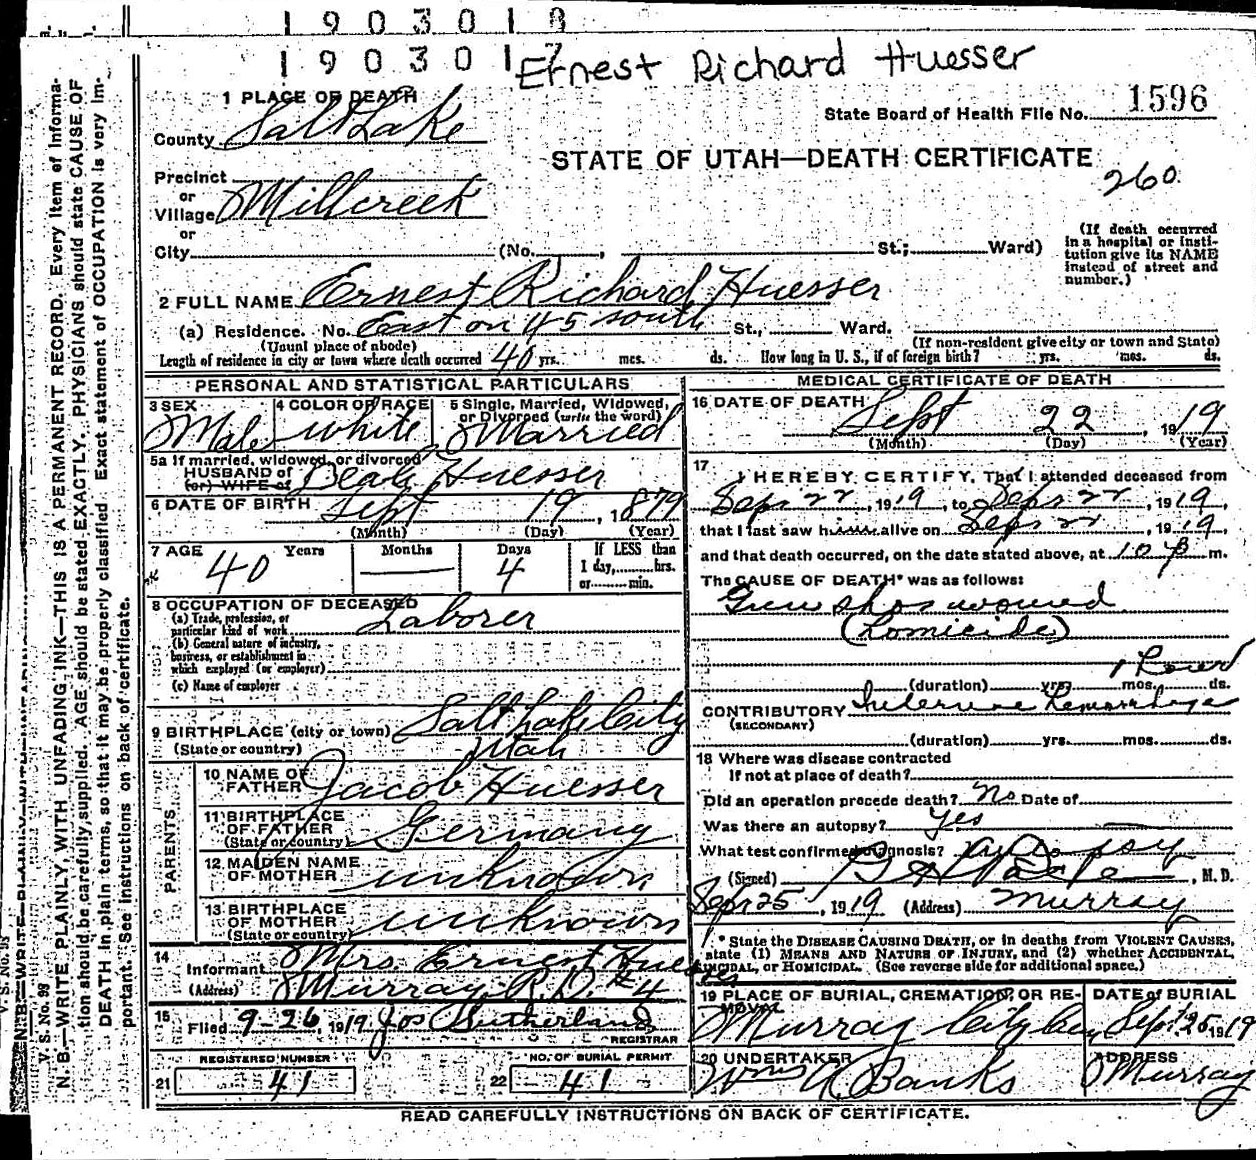 1903018
1903017
Ernest Richard Huesser
1 PLACE OF DEATH
County Salt Lake
State Board of Health File No. 1596
STATE OF UTAH—DEATH CERTIFICATE
260
Precinct
or
Village Millcreek
or
City (No. , St.; Ward)
(If death occurred in a hospital or institution give its NAME instead of street and number.)
2 FULL NAME Ernest Richard Huesser
(a) Residence. No. East on 45 south St., Ward.
(Usual place of abode) (If non-resident give city or town and State)
Length of residence in city or town where death occurred 40 yrs. mos. ds. How long in U. S., if of foreign birth? yrs. mos. ds.
PERSONAL AND STATISTICAL PARTICULARS
3 SEX Male
4 COLOR OR RACE white
5 Single, Married, Widowed, or Divorced (write the word) Married
5a If married, widowed, or divorced
HUSBAND of
(or) WIFE of Huesser
6 DATE OF BIRTH Sept 19, 1879
(Month) (Day) (Year)
7 AGE 40 Years Months 4 Days
If LESS than 1 day, hrs. or min.
8 OCCUPATION OF DECEASED
(a) Trade, profession, or particular kind of work Laborer
(b) General nature of industry, business, or establishment in which employed (or employer)
(c) Name of employer
9 BIRTHPLACE (city or town) Salt Lake City
(State or country) Utah
PARENTS
10 NAME OF FATHER Jacob Huesser
11 BIRTHPLACE OF FATHER (State or country) Germany
12 MAIDEN NAME OF MOTHER unknown
13 BIRTHPLACE OF MOTHER (State or country) unknown
14 Informant Mrs. Ernest Huesser
(Address) Murray R.D. #4
15 Filed 9-26, 1919 Jos Sutherland
REGISTRAR
REGISTERED NUMBER
21 41
NO. OF BURIAL PERMIT
22 41
MEDICAL CERTIFICATE OF DEATH
16 DATE OF DEATH Sept 22, 1919
(Month) (Day) (Year)
17 I HEREBY CERTIFY, That I attended deceased from
Sept 22, 1919, to Sept 22, 1919,
that I last saw him alive on Sept 22, 1919
and that death occurred, on the date stated above, at 10 P m.
The CAUSE OF DEATH* was as follows:
Gun shot wound
(homicide)
1 hour
(duration) yrs. mos. ds.
CONTRIBUTORY hemorrhage
(SECONDARY)
(duration) yrs. mos. ds.
18 Where was disease contracted
If not at place of death?
Did an operation precede death? No Date of
Was there an autopsy? Yes
What test confirmed diagnosis? autopsy
(Signed) , M. D.
Sept 25, 1919 (Address) Murray
* State the DISEASE CAUSING DEATH, or in deaths from VIOLENT CAUSES, state (1) MEANS AND NATURE OF INJURY, and (2) whether ACCIDENTAL, SUICIDAL, or HOMICIDAL. (See reverse side for additional space.)
19 PLACE OF BURIAL, CREMATION, OR REMOVAL
Murray City Cem,
DATE of BURIAL
Sept 25 1919
20 UNDERTAKER
Wm A Banks
ADDRESS
Murray
READ CAREFULLY INSTRUCTIONS ON BACK OF CERTIFICATE.
V. S. No. 98
N. B.—WRITE PLAINLY, WITH UNFADING INK—THIS IS A PERMANENT RECORD. Every item of information should be carefully supplied. AGE should be stated EXACTLY. PHYSICIANS should state CAUSE OF DEATH in plain terms, so that it may be properly classified. Exact statement of OCCUPATION is very important. See instructions on back of certificate.